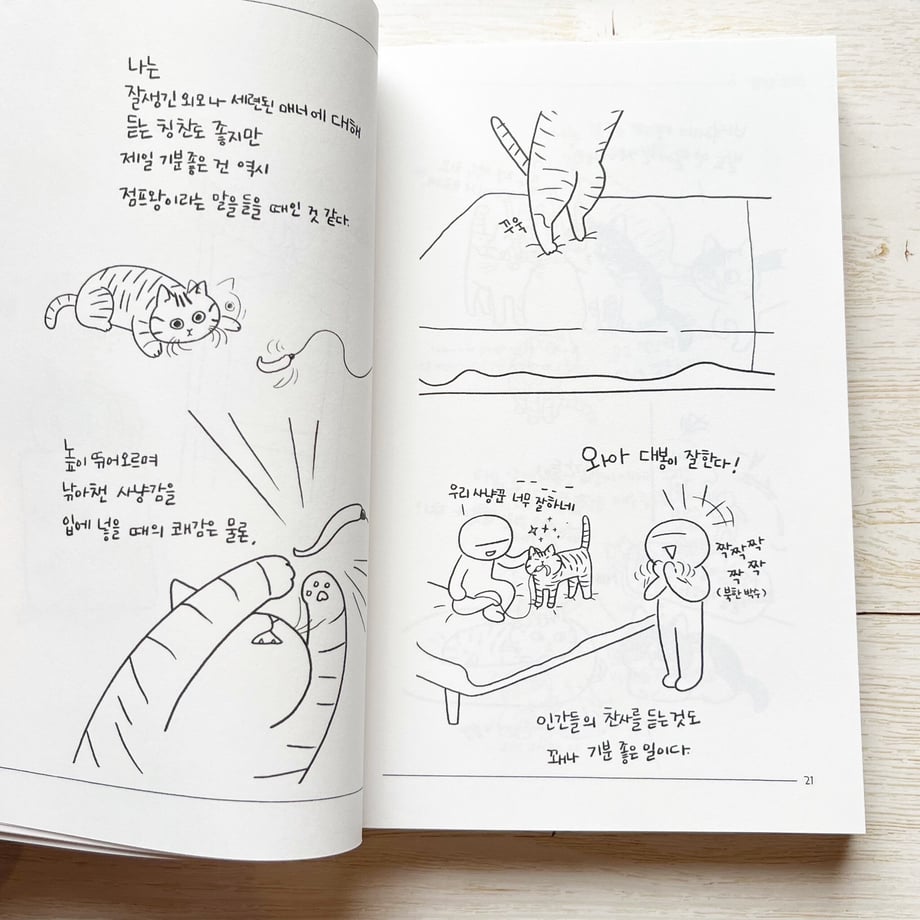 나는
잘생긴 외모나 세련된 매너에 대해
듣는 칭찬도 좋지만
제일 기분 좋은 건 역시
점프왕이라는 말을 들을 때인 것 같다.
높이 뛰어오르며
낚아챈 사냥감을
입에 넣을 때의 쾌감은 물론,
꾸욱
와아 대봉이 잘한다!
우리 사냥꾼 너무 잘하네
짝짝짝
짝짝
(북한 박수)
인간들의 찬사를 듣는 것도
꽤나 기분 좋은 일이다.
21